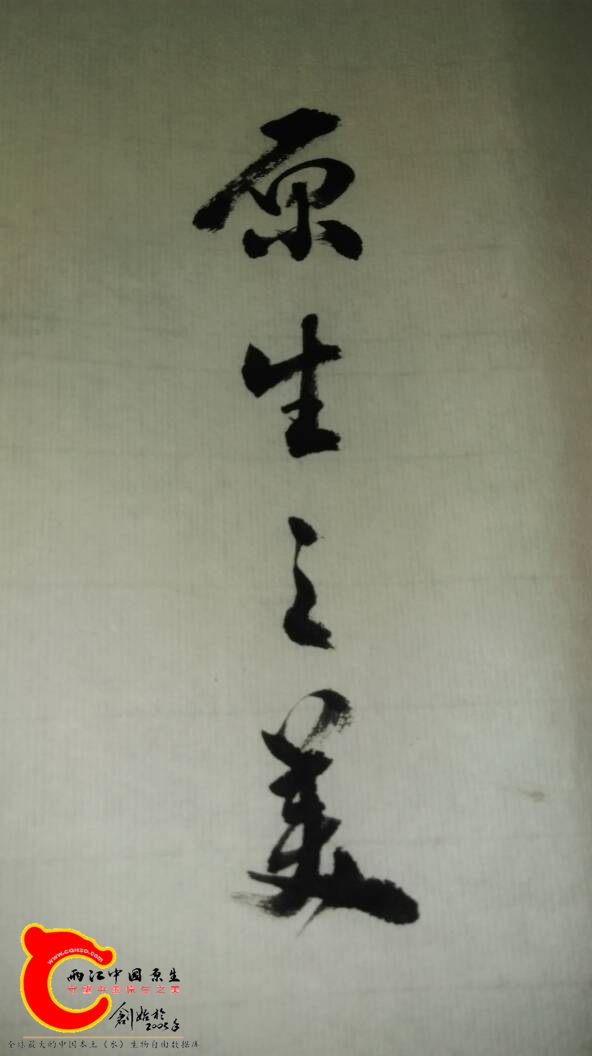 原生之美
www.CGH2O.com
雨江中国原生
分享中国原生之美
創始於
2005年
全球最大的中国本土（水）生物自由数据库